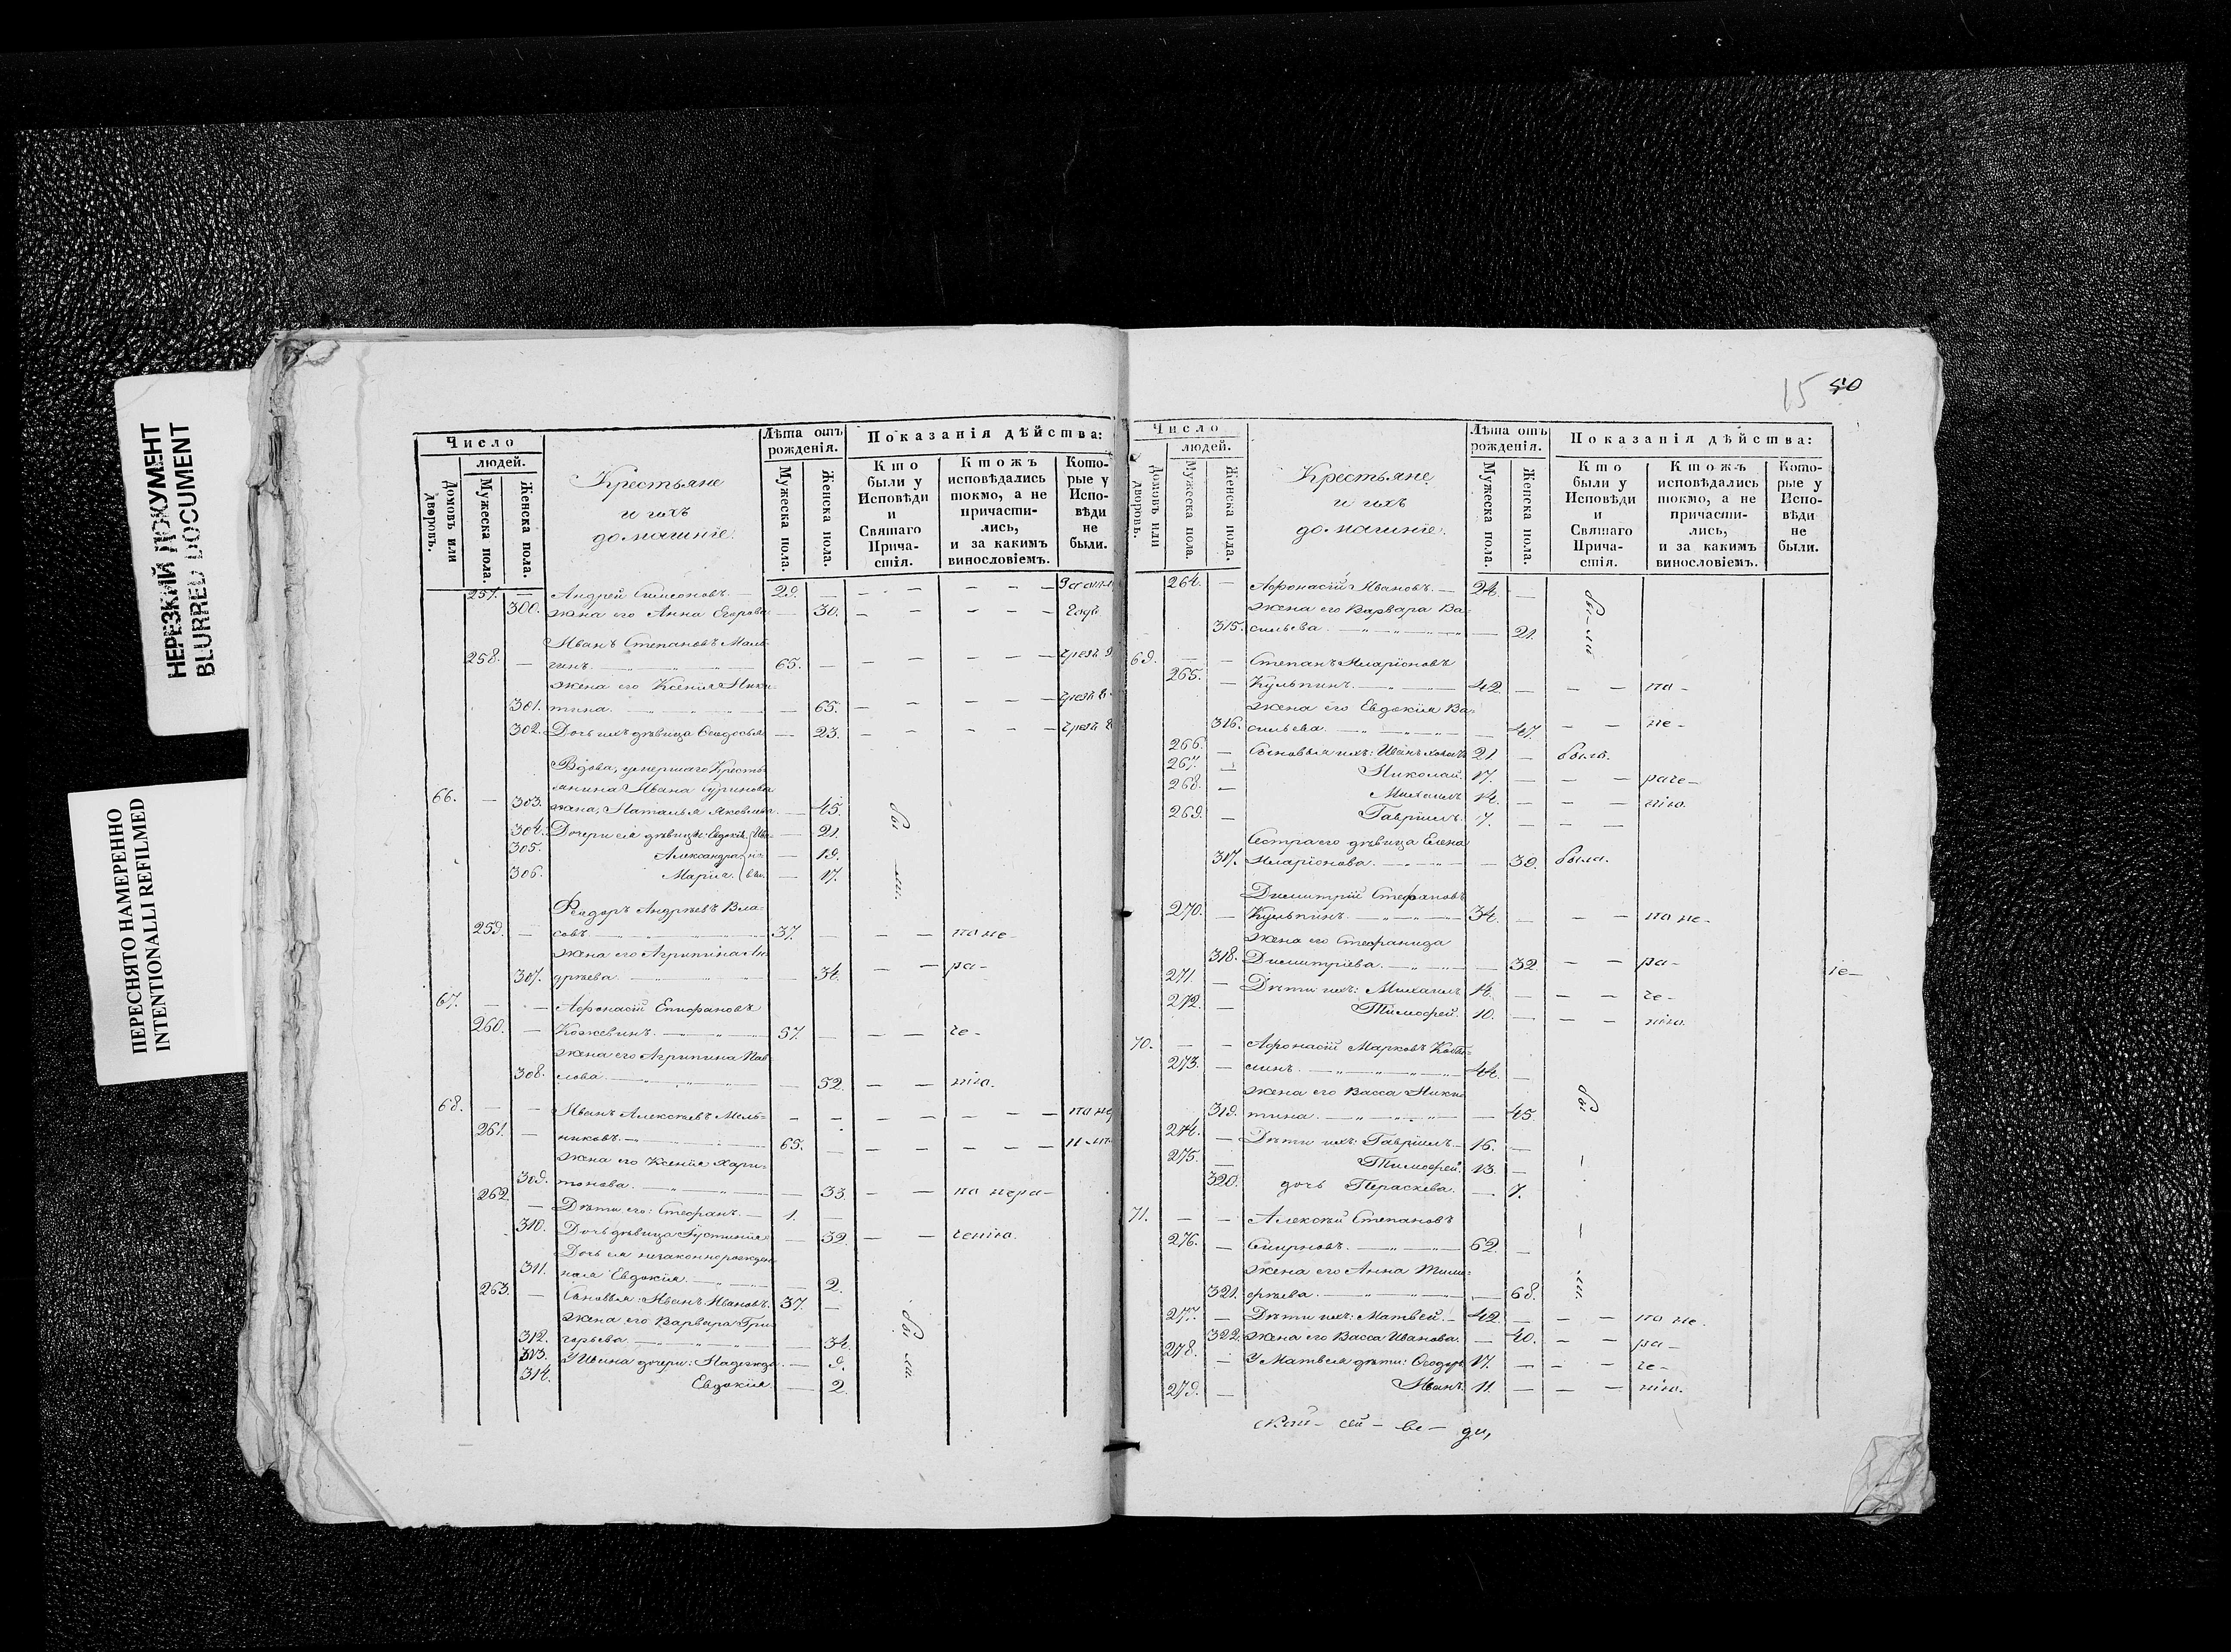 НЕРЕЗКИЙ ДОКУМЕНТ
BLURRED DOCUMENT
ПЕРЕСНЯТО НАМЕРЕННО
INTENTIONALLI REFILMED
Число
людей.
Домовъ или дворовъ.
Мужеска пола.
Женска пола.
Крестьяне
и ихъ
домашніе.
Лѣта отъ рожденія.
Мужеска пола.
Женска пола.
Показанія дѣйства:
Кто были у Исповѣди и Святаго Причастія.
Ктожъ исповѣдались токмо, а не причастились, и за какимъ винословіемъ.
Которые у Исповѣди не были.
257. — Андрей Симеоновъ. — 29. —
300. жена его Анна Егорова — 30.
Иванъ Степановъ Маль-
258. — гинъ. 65. —
жена его Ксенія Ники-
301. тина. — 65.
302. Дочь ихъ дѣвица Ѳеодосья — 23.
Вдова, умершаго Кресть-
янина Ивана
66. — 303. жена, Наталья Яковлева — 45.
304. Дочери ея дѣвицы: Евдокія Ива- — 21.
305. Александра но- — 19.
306. Марія. вы. — 17.
бы — ли.
Ѳеодоръ Андреевъ Вла-
259. — совъ 37. — — — по не-
жена его Агрипина Ан-
307. дреева. — 34. — — ра-
67. — — Афонасій Епифановъ
260. — Кожевинъ. 57. — — — че-
жена его Агрипина Пав-
308. лова. — 52. — — нію.
68. — — Иванъ Алексѣевъ Мель-
261. — никовъ. 65. —
жена его Ксенія Хари-
309. тонова. — 33. — — по нера-
262. — Дѣти его: Стефанъ. — 1. —
310. Дочь дѣвица Іустинія — 32. — — ченію.
Дочь ея незаконнорожден-
311. ная Евдокія. — 2.
263. — Сыновья: Иванъ Ивановъ. 37. —
жена его Варвара Гри-
312. горьева. — 34.
313. У Ивана дочери: Надежда — 9.
314. Евдокія. — 2.
бы ли
15 50
Число
людей.
Домовъ или дворовъ.
Мужеска пола.
Женска пола.
Крестьяне
и ихъ
домашніе.
Лѣта отъ рожденія.
Мужеска пола.
Женска пола.
Показанія дѣйства:
Кто были у Исповѣди и Святаго Причастія.
Ктожъ исповѣдались токмо, а не причастились, и за какимъ винословіемъ.
Которые у Исповѣди не были.
264. — Афонасій Ивановъ. — 24. —
жена его Варвара Ва-
315. сильева. — 21.
бы — ли
69. — — Степанъ Иларіоновъ
265. — Кульпинъ. 42. — — — по-
жена его Евдокія Ва-
316. сильева. — 47. — — не-
266. — Сыновья ихъ: Иванъ 21 — былъ.
267. — Николай. 17. — — — раче-
268. — Михаилъ 14. — — — нію.
269. — Гавріилъ. 7. — — —
Сестра его дѣвица Елена
317. Иларіонова. — 39. была.
Димитрій Стефановъ
270. — Кульпинъ. 34. — — — по не-
жена его Стефанида
318. Димитріева. — 32. — — ра-
271. — Дѣти ихъ: Михаилъ 14. — — — че-
272. — Тимофей. 10. — — — нію.
70. — — Афонасій Марковъ Кост-
273. — 44. —
жена его Васса Ники-
319. тина. — 45.
274. — Дѣти ихъ: Гавріилъ. — 16. —
275. — Тимофей. 13. —
320. дочь Параскева. — 7.
71. — — Алексѣй Степановъ
276. — Смирновъ. 62. —
жена его Анна Тимо-
321. фѣева. — 68.
бы — — ли.
277. — Дѣти ихъ: Матвей. — 42. — — — по не.
322. Жена его Васса Иванова. — 40. — — ра-
278. — У Матвея дѣти: Ѳеодоръ 17. — — — че-
279. — Иванъ. 11. — — — нію.